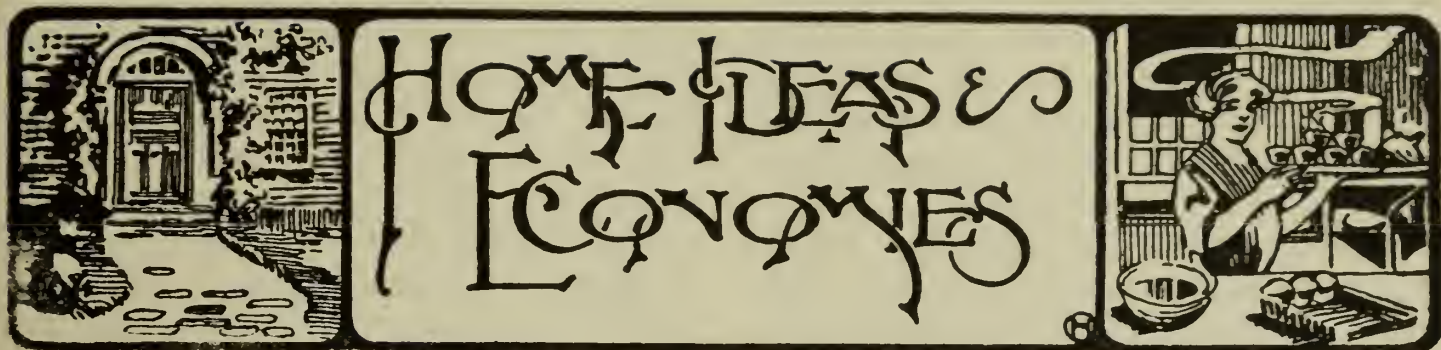 HOME IDEAS &
ECONOMIES